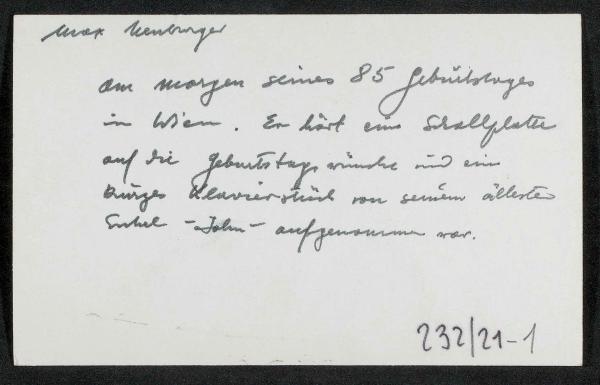 Max Neuburger
am morgen seines 85 Geburtstages
in Wien. Er hört eine Schallplatte
auf die Geburtstagswünsche und ein
kurzes Klavierstück von seinem ältesten
Enkel - John - aufgenommen war.
232/21-1